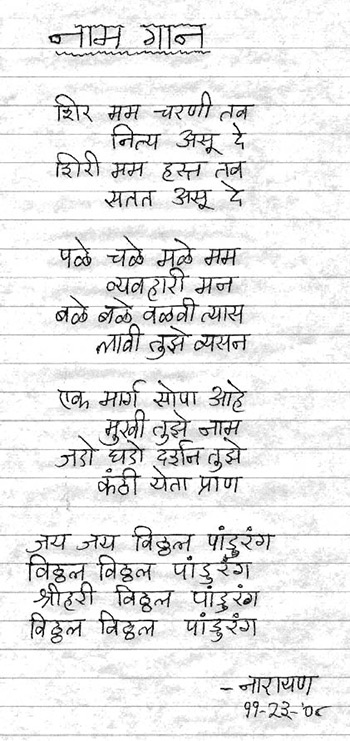 नाम गान
शिर मम चरणी तव
नित्य असू दे
शिरी मम हस्त तव
सतत असू दे
पळे चळे मुळे मम
व्यवहारी मन
बळे बळे वळवी त्यास
लावी तुझे व्यसन
एक मार्ग सोपा आहे
मुखी तुझे नाम
जडो घडो दर्शन तुझे
कंठी येता प्राण
जय जय विठ्ठल पांडुरंग
विठ्ठल विठ्ठल पांडुरंग
श्रीहरी विठ्ठल पांडुरंग
विठ्ठल विठ्ठल पांडुरंग
-नारायण